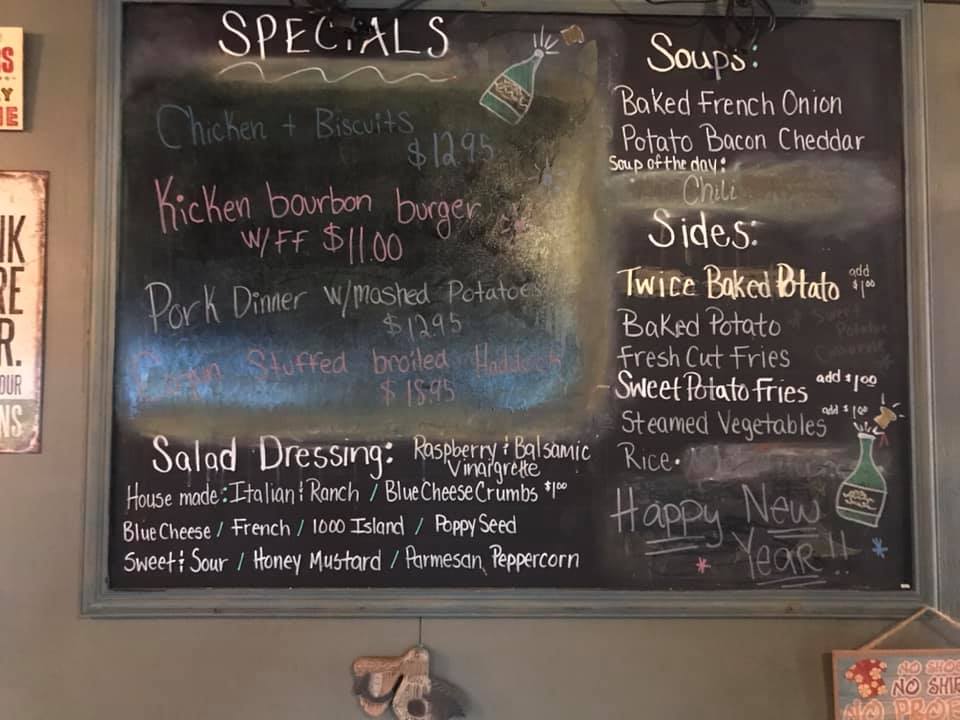 SPECIALS
Chicken + Biscuits
$12.95
Kicken bourbon burger
W/FF $11.00
Pork Dinner w/mashed Potatoes
$12.95
Cajun Stuffed broiled Haddock
$18.95
Salad Dressing: Raspberry & Balsamic
Vinargrette
House made: Italian & Ranch / Blue Cheese Crumbs $1.00
Blue Cheese / French / 1000 Island / Poppy Seed
Sweet & Sour / Honey Mustard / Parmesan Peppercorn
Soups:
Baked French Onion
Potato Bacon Cheddar
Soup of the day:
Chili
Sides:
Twice Baked Potato add $1.00
Baked Potato
Fresh Cut Fries
Sweet Potato Fries add $1.00
Steamed Vegetables add $1.00
Rice
Happy New
Year!!
NO SHOE
NO SHI
NO PROB
NK
RE
R.
OUR
NS